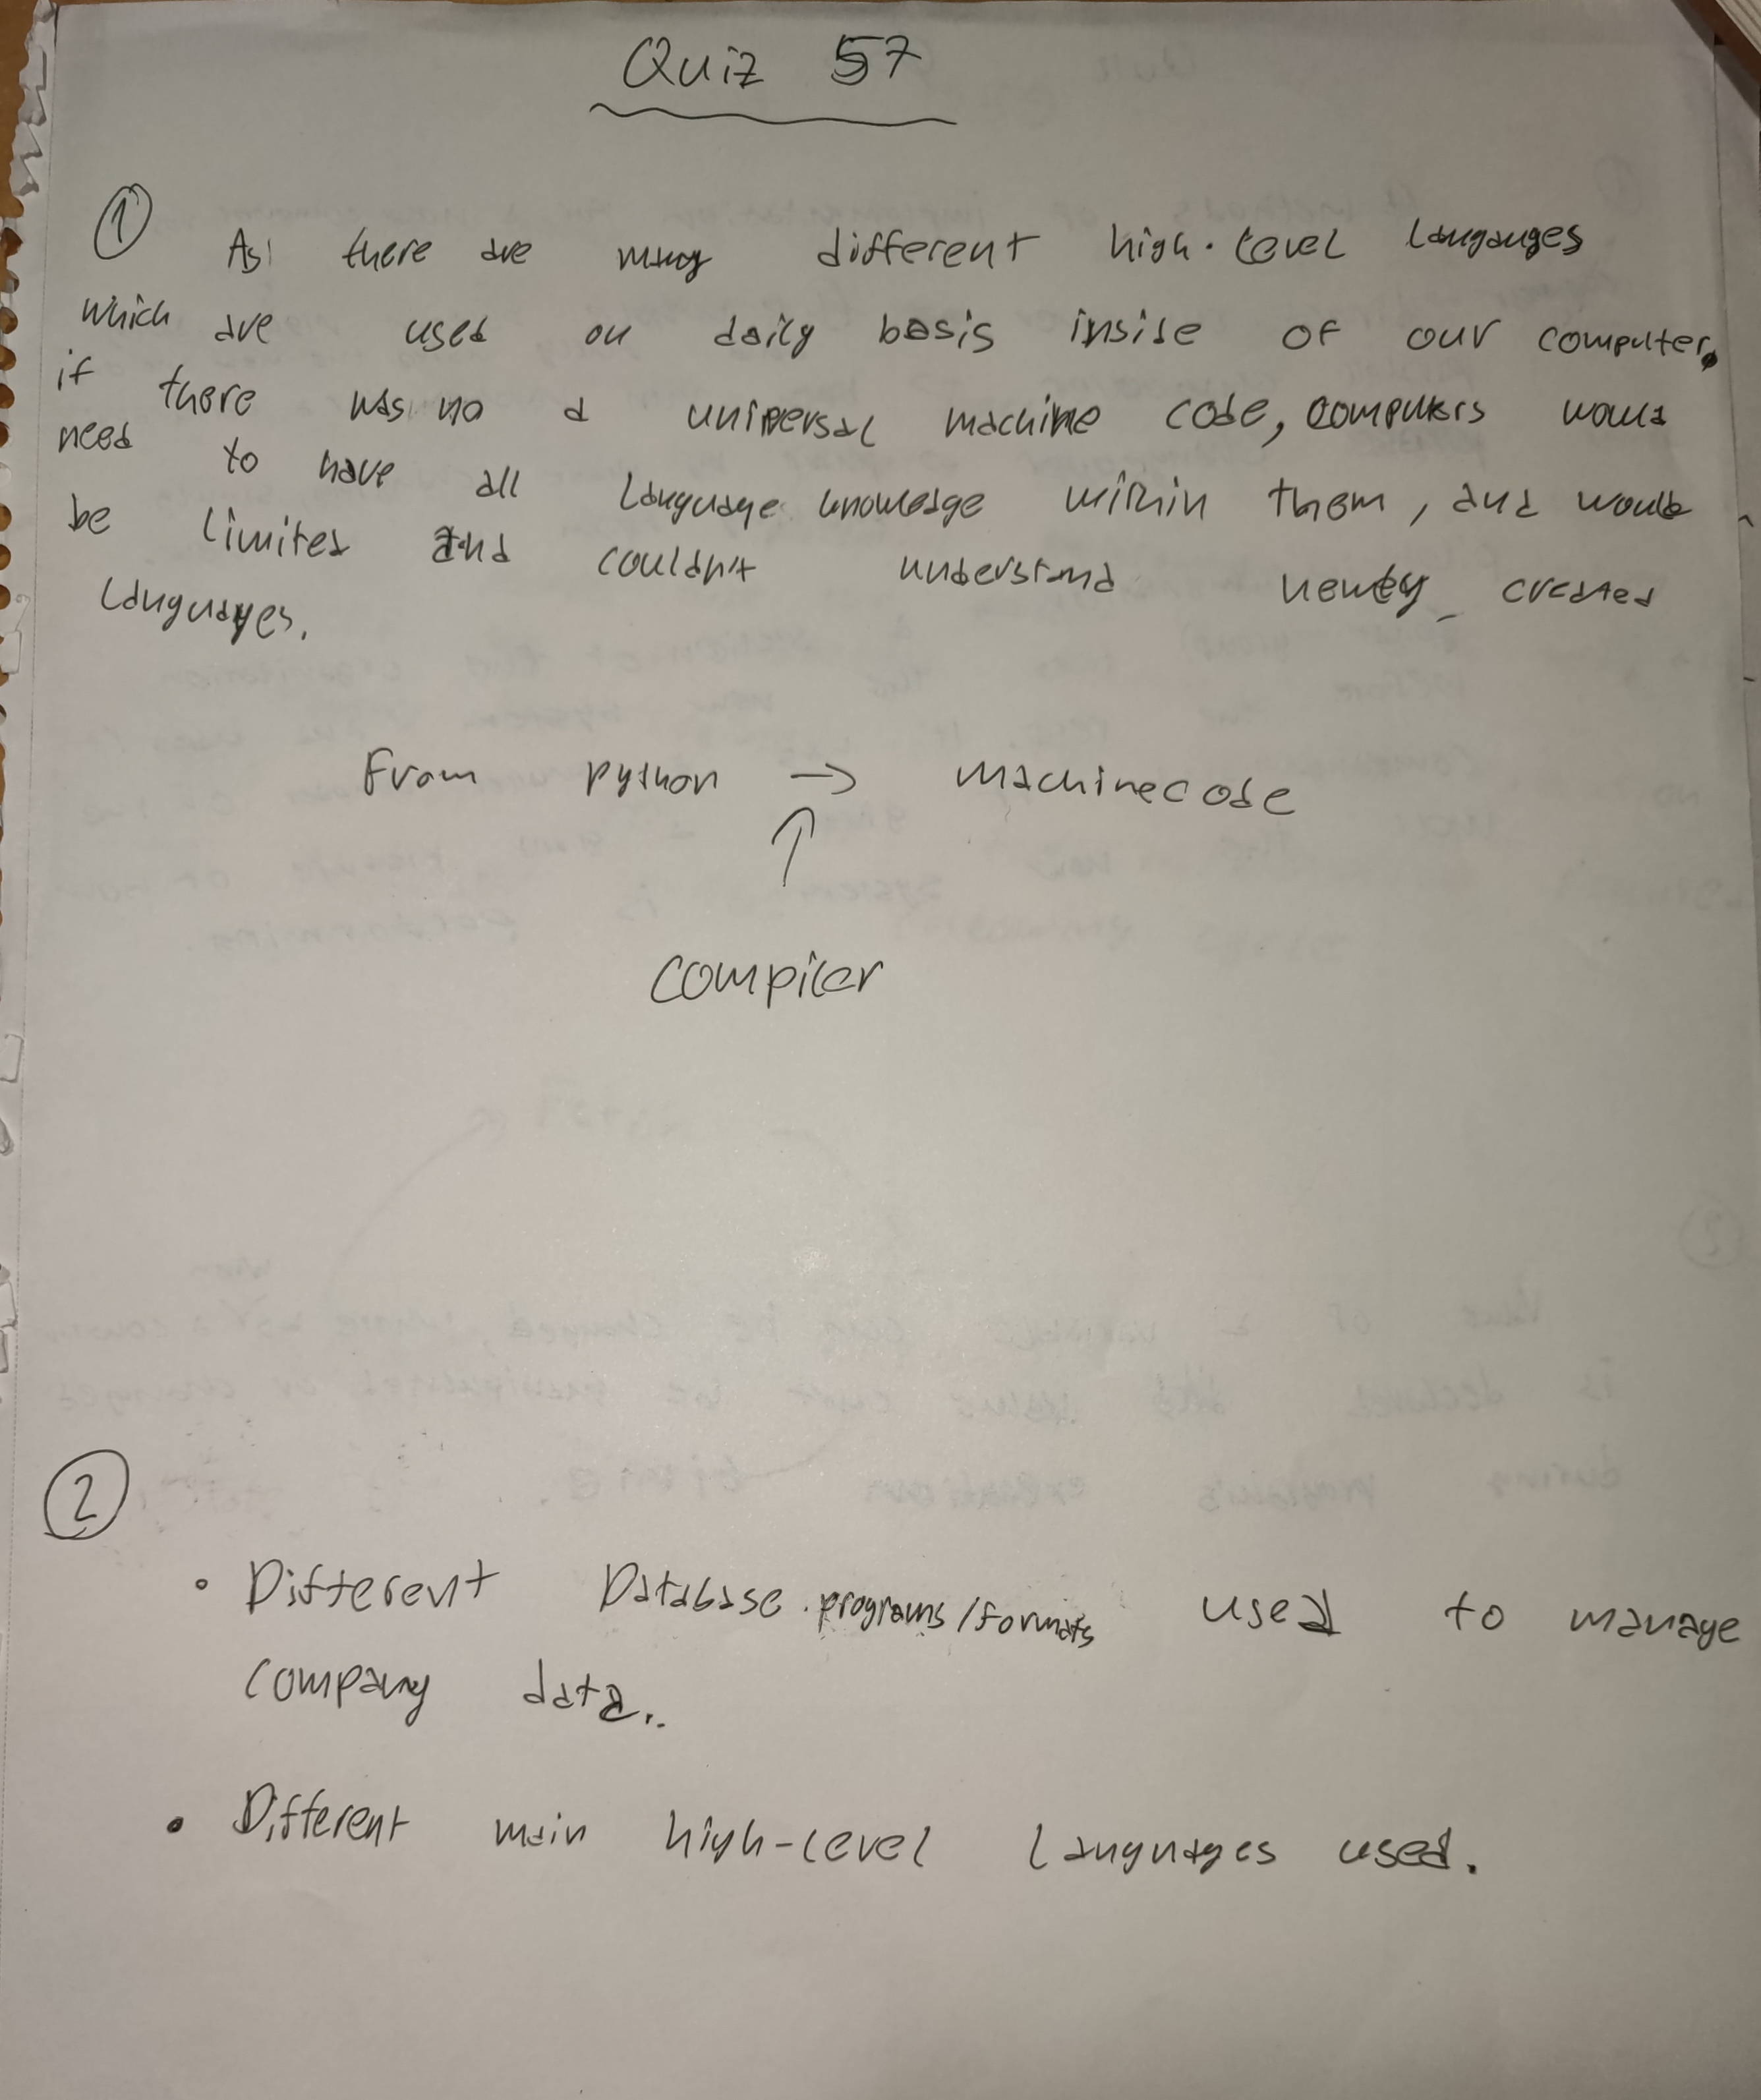 Quiz 57
① As there are many different high-level langauges
which are used on daily basis inside of our computer,
if there was no a universal machine code, computers would
need to have all language knowledge within them, and would
be limited and couldn't understand newly created
languages.
From python → machinecode
↑
compiler
②
• Different Database programs/formats used to manage
company data.
• Different main high-level languages used.